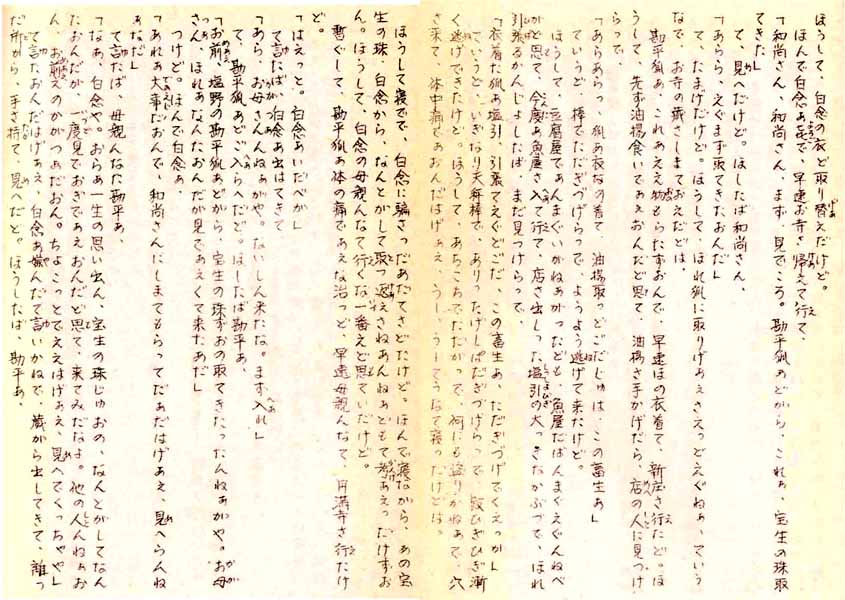 ほうして、白念の衣ど取り替えだけど。
ほんで白念あ急で早速お寺さ帰えて行て、
「和尚さん、和尚さん、まず、見でころ。勘平狐あどがら、これぁ、宝生の珠取
てきた」
て、見へだけど。ほしたば和尚さん、
「あらら、えぐまず取てきたおんだ」
て、たまげだけど。ほうして、ほれ狐に取りげあえさえっとえぐねぁ、ていう
なで、お寺の蔵さしまておえだどは。
勘平狐あ、これあええ物もらたずおんで、早速ほの衣着て、新庄さ行たど。ほ
うして、先ず油揚食いでぁえおんだど思て、油揚さ手かげだら、店の人に見つけ
らって、
「あらあらっ、狐あ衣なの着て、油揚取っどごだじゅは、この畜生ぁ」
ていうど、棒でただぎつげらって、ようよう逃げて来たけど。
ほうして、豆腐屋でぁんまぐいがねぁがったども、魚屋だばんまぐえぐんねべ
がど思て、今度ぁ魚屋さ入て行て、店さ出しった塩引の大っきたがぶづで、ほれ
引張るかんじょしたば、まだ見つけらって、
「衣着た狐あ塩引、引張てえぐどごだ、この畜生あ、ただぎつげでくえっか」
ていうど、いぎなり天秤棒で、ありったげしぱだぎつげらって、跛ひぎひぎ漸
く逃げできたけど。ほうして、あちこちでただがって、何にも盗りかねぁで、穴
さ来て、体中痛であおんだはげあえ、うーし、うーてうなて寝ったけどは。
ほうして寝でで、白念に騙さったあだてさどたけど。ほんで寝ながら、あの宝
生の珠、白念から、なんとがして取っ返えさねあんねあどもて考えったけずお
ん。ほうして、白念の母親んなて行くな一番えど思ていだけど。
暫ぐして、勘平狐ぁ体の痛であえな治っど、早速母親んなて、円満寺さ行たけ
ど。
「はえっと。白念あいだべが」
て言たば、白念あ出はてきて
「あら、お母さんんねぁがや。ないしん来たな。まず入れ」
て、勘平狐あどご入らへだど。ほしたば勘平あ、
「お前、塩野の勘平狐あどがら、宝生の珠ずおの取てきたったんねぁがや。お母
さん、ほれぁなんたおんだが見であえくて来たあだ」
つけど。ほんで白念あ、
「あれぁ大事だおんで、和尚さんにしまてもらってだぁだはげあえ、見へらんね
あなだ」
て言たば、母親んなた勘平あ、
「なあ、白念や。おらぁ一生の思い出ん、宝生の珠じゅおの、なんとがしてなん
たおんだが、一度見でおぎであえおんだど思て、来てみだなよ。他の人んねぁお
ん、お前えのかがつあだおん。ちょこっとでええはげあえ、見へてくっちゃや」
て言たおんだはげあえ、白念あ嫌んだて言いかねで、蔵がら出してきて、離っ
だ所から、手さ持て、見へだど。ほうしたば、勘平あ、